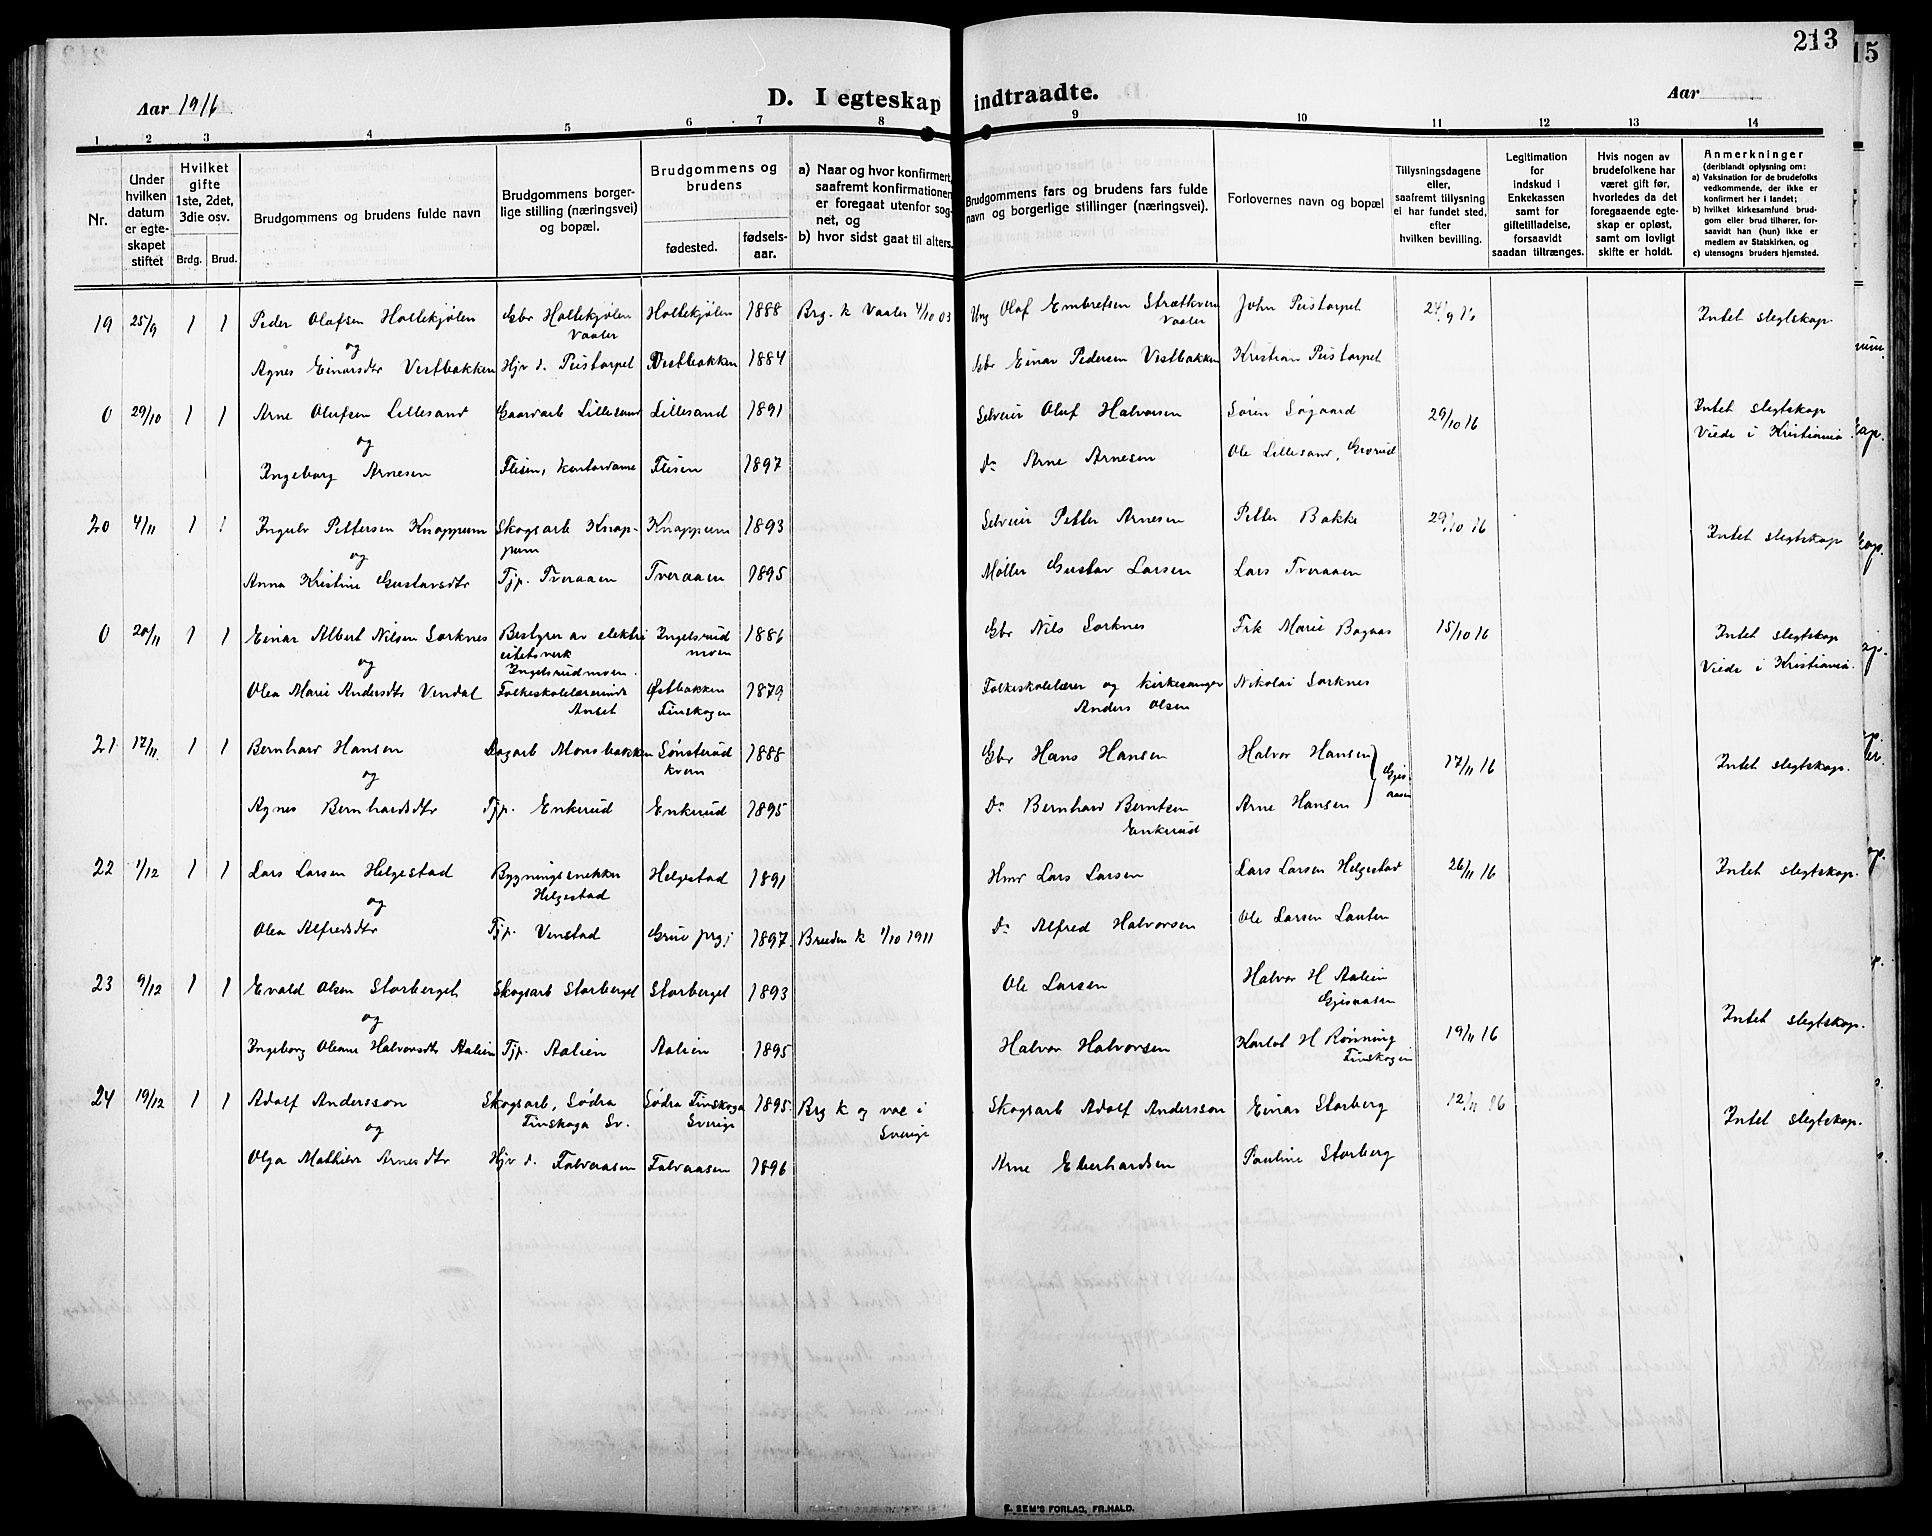 213
15
Aar 1916
D. I egteskap indtraadte.
Aar
1 2 3 4 5 6 7 8 9 10 11 12 13 14
Nr.
Under hvilken datum er egteskapet stiftet
Hvilket gifte 1ste, 2det, 3die osv.
Brdg. Brud.
Brudgommens og brudens fulde navn
Brudgommens borgerlige stilling (næringsvei) og bopæl.
Brudgommens og brudens
fødested.
fødselsaar.
a) Naar og hvor konfirmert, saafremt konfirmationen er foregaat utenfor sognet, og
b) hvor sidst gaat til alters.
Brudgommens fars og brudens fars fulde navn og borgerlige stillinger (næringsvei).
Forlovernes navn og bopæl
Tillysningsdagene eller, saafremt tillysning ei har fundet sted, efter hvilken bevilling.
Legitimation for indskud i Enkekassen samt for giftetilladelse, forsaavidt saadan tiltrænges.
Hvis nogen av brudefolkene har været gift før, hvorledes da det foregaaende egteskap er opløst, samt om lovligt skifte er holdt.
Anmerkninger
(deriblandt oplysning om:
a) Vaksination for de brudefolks vedkommende, der ikke er konfirmert her i landet;
b) hvilket kirkesamfund brudgom eller brud tilhører, forsaavidt han (hun) ikke er medlem av Statskirken, og
c) utensogns bruders hjemsted.
19 25/9 1 1 Peder Olafsen Hollekjølen Gbr Hollekjølen Vaaler Hollekjølen 1888 Brg. k Vaaler 4/10 03 Ung Olaf Embretsen Strætkvern Vaaler John Peistorpet 24/9 16 Intet slegtskap.
og
Agnes Einarsdtr Vestbakken Hjv d. Peistorpet Vestbakken 1884 Gbr Einar Pedersen Vestbakken Kristian Peistorpet
0 29/10 1 1 Arne Olufsen Lillesand Gaardarb Lillesand Lillesand 1891 Selveier Oluf Halvorsen Søren Søgaard 29/10 16 Intet slegtskap
Viede i Kristiania.
og
Ingeborg Arnesen Flisen, kontordame Flisen 1897 Do Arne Arnesen Ole Lillesand, Gravrud
20 4/11 1 1 Ingulv Pettersen Knappum Skogsarb Knappum Knappum 1893 Selveier Petter Arnesen Petter Bakke 29/10 16 Intet slegtskap
og
Anna Kristine Gustavsdtr Tjp. Tveraaen Tveraaen 1895 Møller Gustav Larsen Lars Tveraaen
0 20/11 1 1 Einar Albert Nilsen Sorknes Bestyrer av elektricitetsverk Ingelsrudmoen. Ingelsrudmoen 1886 Gbr Nils Sorknes Frk Marie Bogaas 15/10 16 Intet slegtskap
Viede i Kristiania.
og
Olea Marie Andersdtr Vendal Folkeskolelærerinde Anset Østbakken Finskogen 1879 Folkeskolelærer og kirkesanger Anders Olsen Nikolai Sorknes
21 17/11 1 1 Bernhard Hansen Dagarb Monsbakken Sønsterud kvern 1888 Gbr Hans Hansen Halvor Hansen 17/11 16 Intet slegtskap.
og Gjesaasen
Agnes Bernhardsdtr Tjp. Enkerud Enkerud 1895 Do Bernhard Berntsen Enkerud Arne Hansen
22 1/12 1 1 Lars Larsen Helgestad Bygningssnekker Helgestad Helgestad 1891 Hmd Lars Larsen Lars Larsen Helgestad 26/11 16 Intet slegtskap.
og
Olea Alfredsdtr Tjp. Venstad Grue prgj 1897 Bruden k 1/10 1911 Do Alfred Halvorsen Ole Larsen Lauten
23 9/12 1 1 Evald Olsen Storberget Skogsarb Storberget Storberget 1893 Ole Larsen Halvor H Aalien Gjesaasen Intet slegtskap.
og
Ingeborg Oleane Halvorsdtr Aalien Tjp. Aalien Aalien 1895 Halvor Halvorsen Karlot H Rønning Finskogen 19/11 16
24 19/12 1 1 Adolf Andersson Skogsarb, Södra Finskoga Sv. Södra Finskoga Sverige 1895 Brg k og vac i Sverige Skogsarb Adolf Andersson Einar Storberg 12/11 16 Intet slegtskap.
og
Olga Mathilde Arnesdtr Hjv d. Falvaasen Falvaasen 1896 Arne Eberhardsen Pauline Storberg
E. SEM'S FORLAG, FR.HALD.